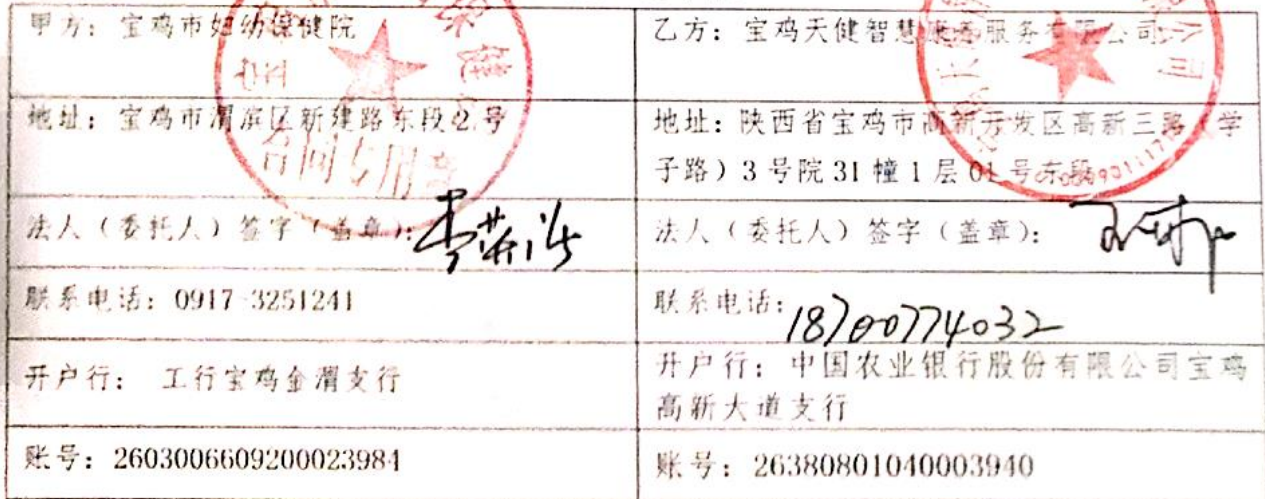 甲方：宝鸡市妇幼保健院
乙方：宝鸡天健智慧康养服务有限公司
地址：宝鸡市渭滨区新建路东段2号
地址：陕西省宝鸡市高新开发区高新三路（学
子路）3号院31幢1层01号东段
合同专用章
法人（委托人）签字（盖章）：
法人（委托人）签字（盖章）：
联系电话：0917-3251241
联系电话：18700774032
开户行： 工行宝鸡金渭支行
开户行：中国农业银行股份有限公司宝鸡
高新大道支行
账号：2603006609200023984
账号：26380801040003940